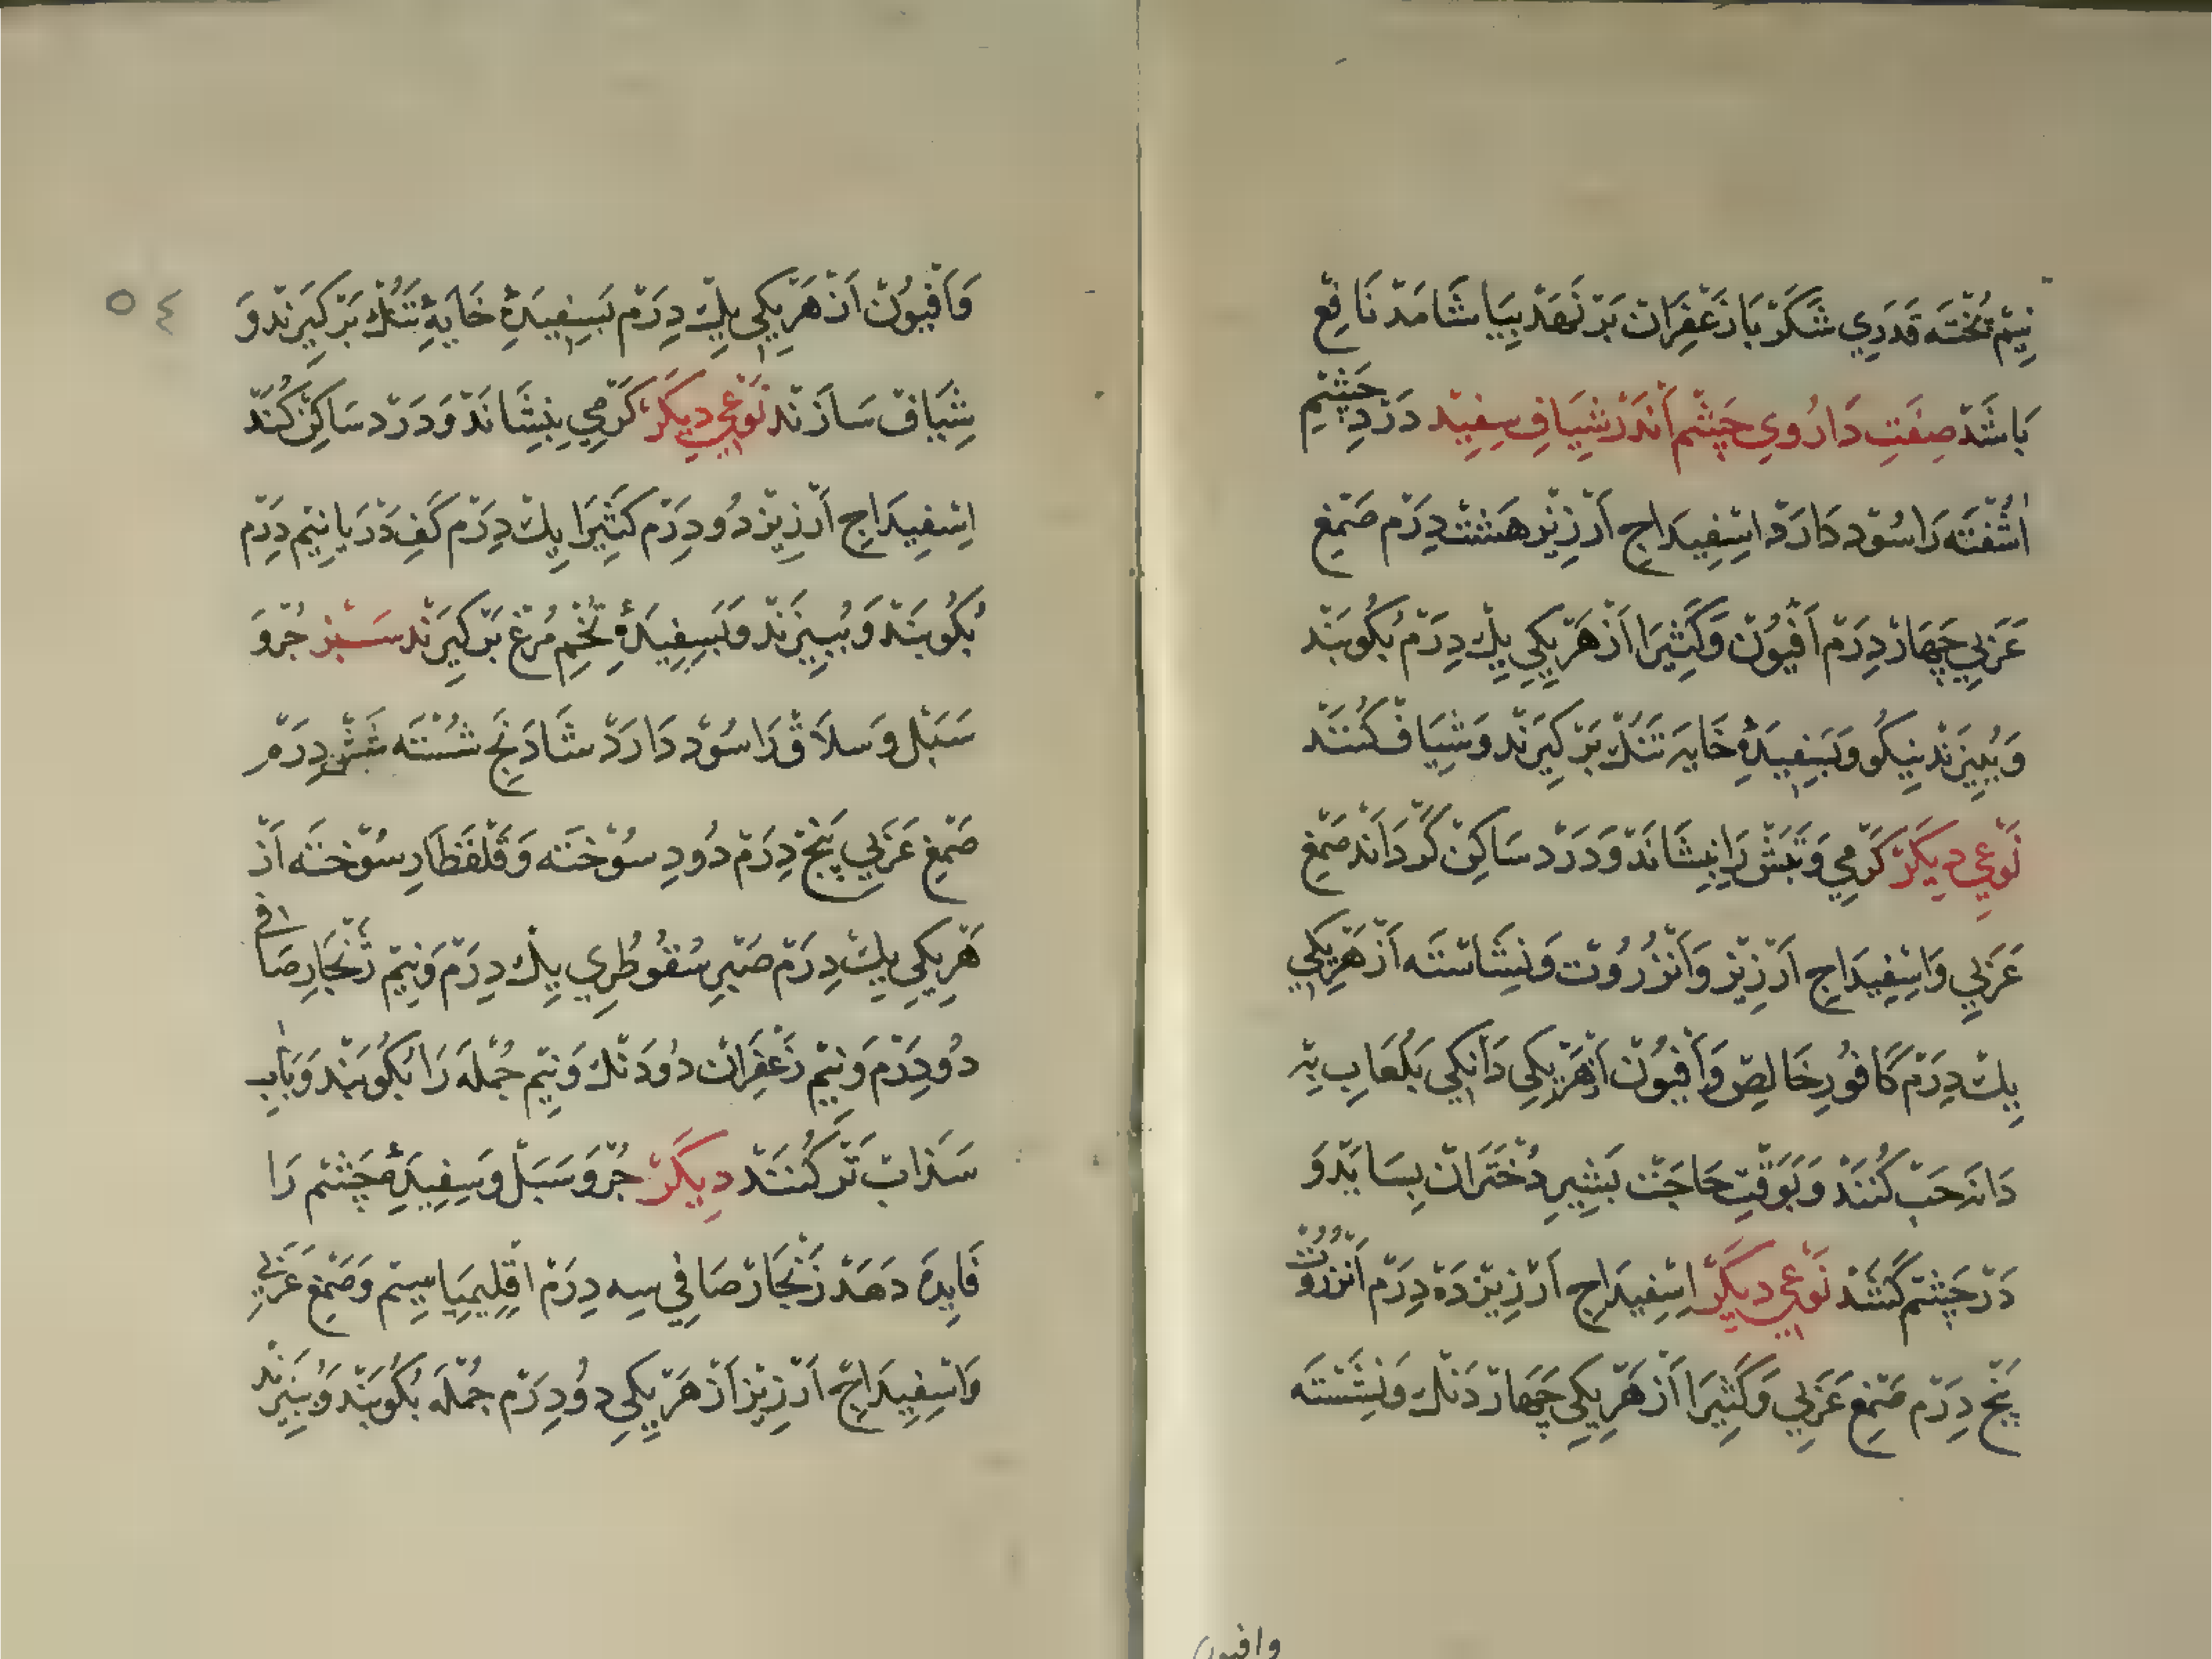 نِیم تُخْتَه قَدَرِي شَکَرْ بَا زَعْفَرَانْ بَرْ نَهَدْ بِیَاشَامَدْ نَافِعْ
بَاشَدْ صِفَتِ دَارُويِ چَشْم اَنْدَرْ شِیَافِ سِفِیدْ دَرْدِ چَشْمِ
اشُفْتَه رَا سُوْد دَارَدْ اِسْفِیدَاجِ اَرْزِیزْ هَشْتْ دِرَمْ صَمْغِ
عَرَبِي چَهَارْ دِرَمْ اَفْیُونْ وَکَثِیرَا اَزْ هَرْ یَکِي یِكْ دِرَمْ بُکُوبَنْد
وَبُبِیزَنْد نِیکُو وَبَسِفِیدَۀِ خَایَه تَنُكْ بَرْ کِیرَنْد وَشِیَافْ کُنَنْد
نَوْعِي دِیکَرْ کَرْمِي وَتَبَشْ رَا بِنِشَانَدْ وَدَرْد سَاکِنْ کَرْدَانَد صَمْغِ
عَرَبِي وَاِسْفِیدَاجِ اَرْزِیزْ وَاَنْزُرُوتْ وَنِشَاسْتَه اَزْ هَرْ یَکِي
یِكْ دِرَمْ کَافُورِ خَالِصْ وَاَفْیُونْ اَزْ هَرْ یَکِي دَانَکِي بَلُعَابِ بِهْ
دَانَه حَبْ کُنَنْد وَبَوَقْتِ حَاجَتْ بَشِیرِ دُخْتَرَانْ بِسَایَنْد وَ
دَرْ چَشْم کَشَنْد نَوْعِي دِیکَرْ اِسْفِیدَاجِ اَرْزِیزْ دَهْ دِرَمْ اَنْزُرُوتْ
پَنْج دِرَمْ صَمْغِ عَرَبِي وَکَثِیرَا اَزْ هَرْ یَکِي چَهَارْ دَنْكْ وَنِشَسْتَه
وافیون
٥٤
وَاَفْیُونْ اَزْ هَرْ یَکِي یِكْ دِرَمْ بَسِفِیدَۀِ خَایَۀِ تَنُكْ بَرْ کِیرَنْد وَ
شِیَافْ سَازَنْد نَوْعِي دِیکَرْ کَرْمِي بِنِشَانَدْ وَدَرْد سَاکِنْ کُنَدْ
اِسْفِیدَاجِ اَرْزِیزْ دُو دِرَمْ کَثِیرَا یِكْ دِرَمْ کَفِ دَرْیَا نِیم دِرَمْ
بُکُوبَنْد وَبُبِیزَنْد وَبَسِفِیدَۀِ تُخْمِ مُرْغْ بَرْ کِیرَنْد سَبْز جُرْو
سَبَلْ وَسلاَقْ رَا سُوْد دَارَدْ شَادَنِجِ شُسْتَه شَشْ دِرَمْ
صَمْغِ عَرَبِي پَنْج دِرَمْ دُودِ سُوْخْتَه وَقَلْقَطَارِ سُوْخْتَه اَزْ
هَرْ یَکِي یِكْ دِرَمْ صَبْرِ سُقُوطْرِي یِكْ دِرَمْ وَنِیم زَنْجَارِ صَافِي
دُو دِرَمْ وَنِیم زَعْفَرَانْ دُو دَنْكْ وَنِیم جُمْلَه رَا بُکُوبَنْد وَبَابِ
سَذَابْ تَرْ کُنَنْد دِیکَرْ جُرْو سَبَلْ وَسِفِیدَۀِ چَشْم رَا
فَایِدَه دَهَدْ زَنْجَارْ صَافِي سِه دِرَمْ اقْلِیمِیَا سِیم وَصَمْغِ عَرَبِي
وَاسْفِیدَاجِ اَرْزِیزْ اَزْ هَرْ یَکِي دُو دِرَمْ جُمْلَه بُکُوبَنْد وَبُبِیزَنْد